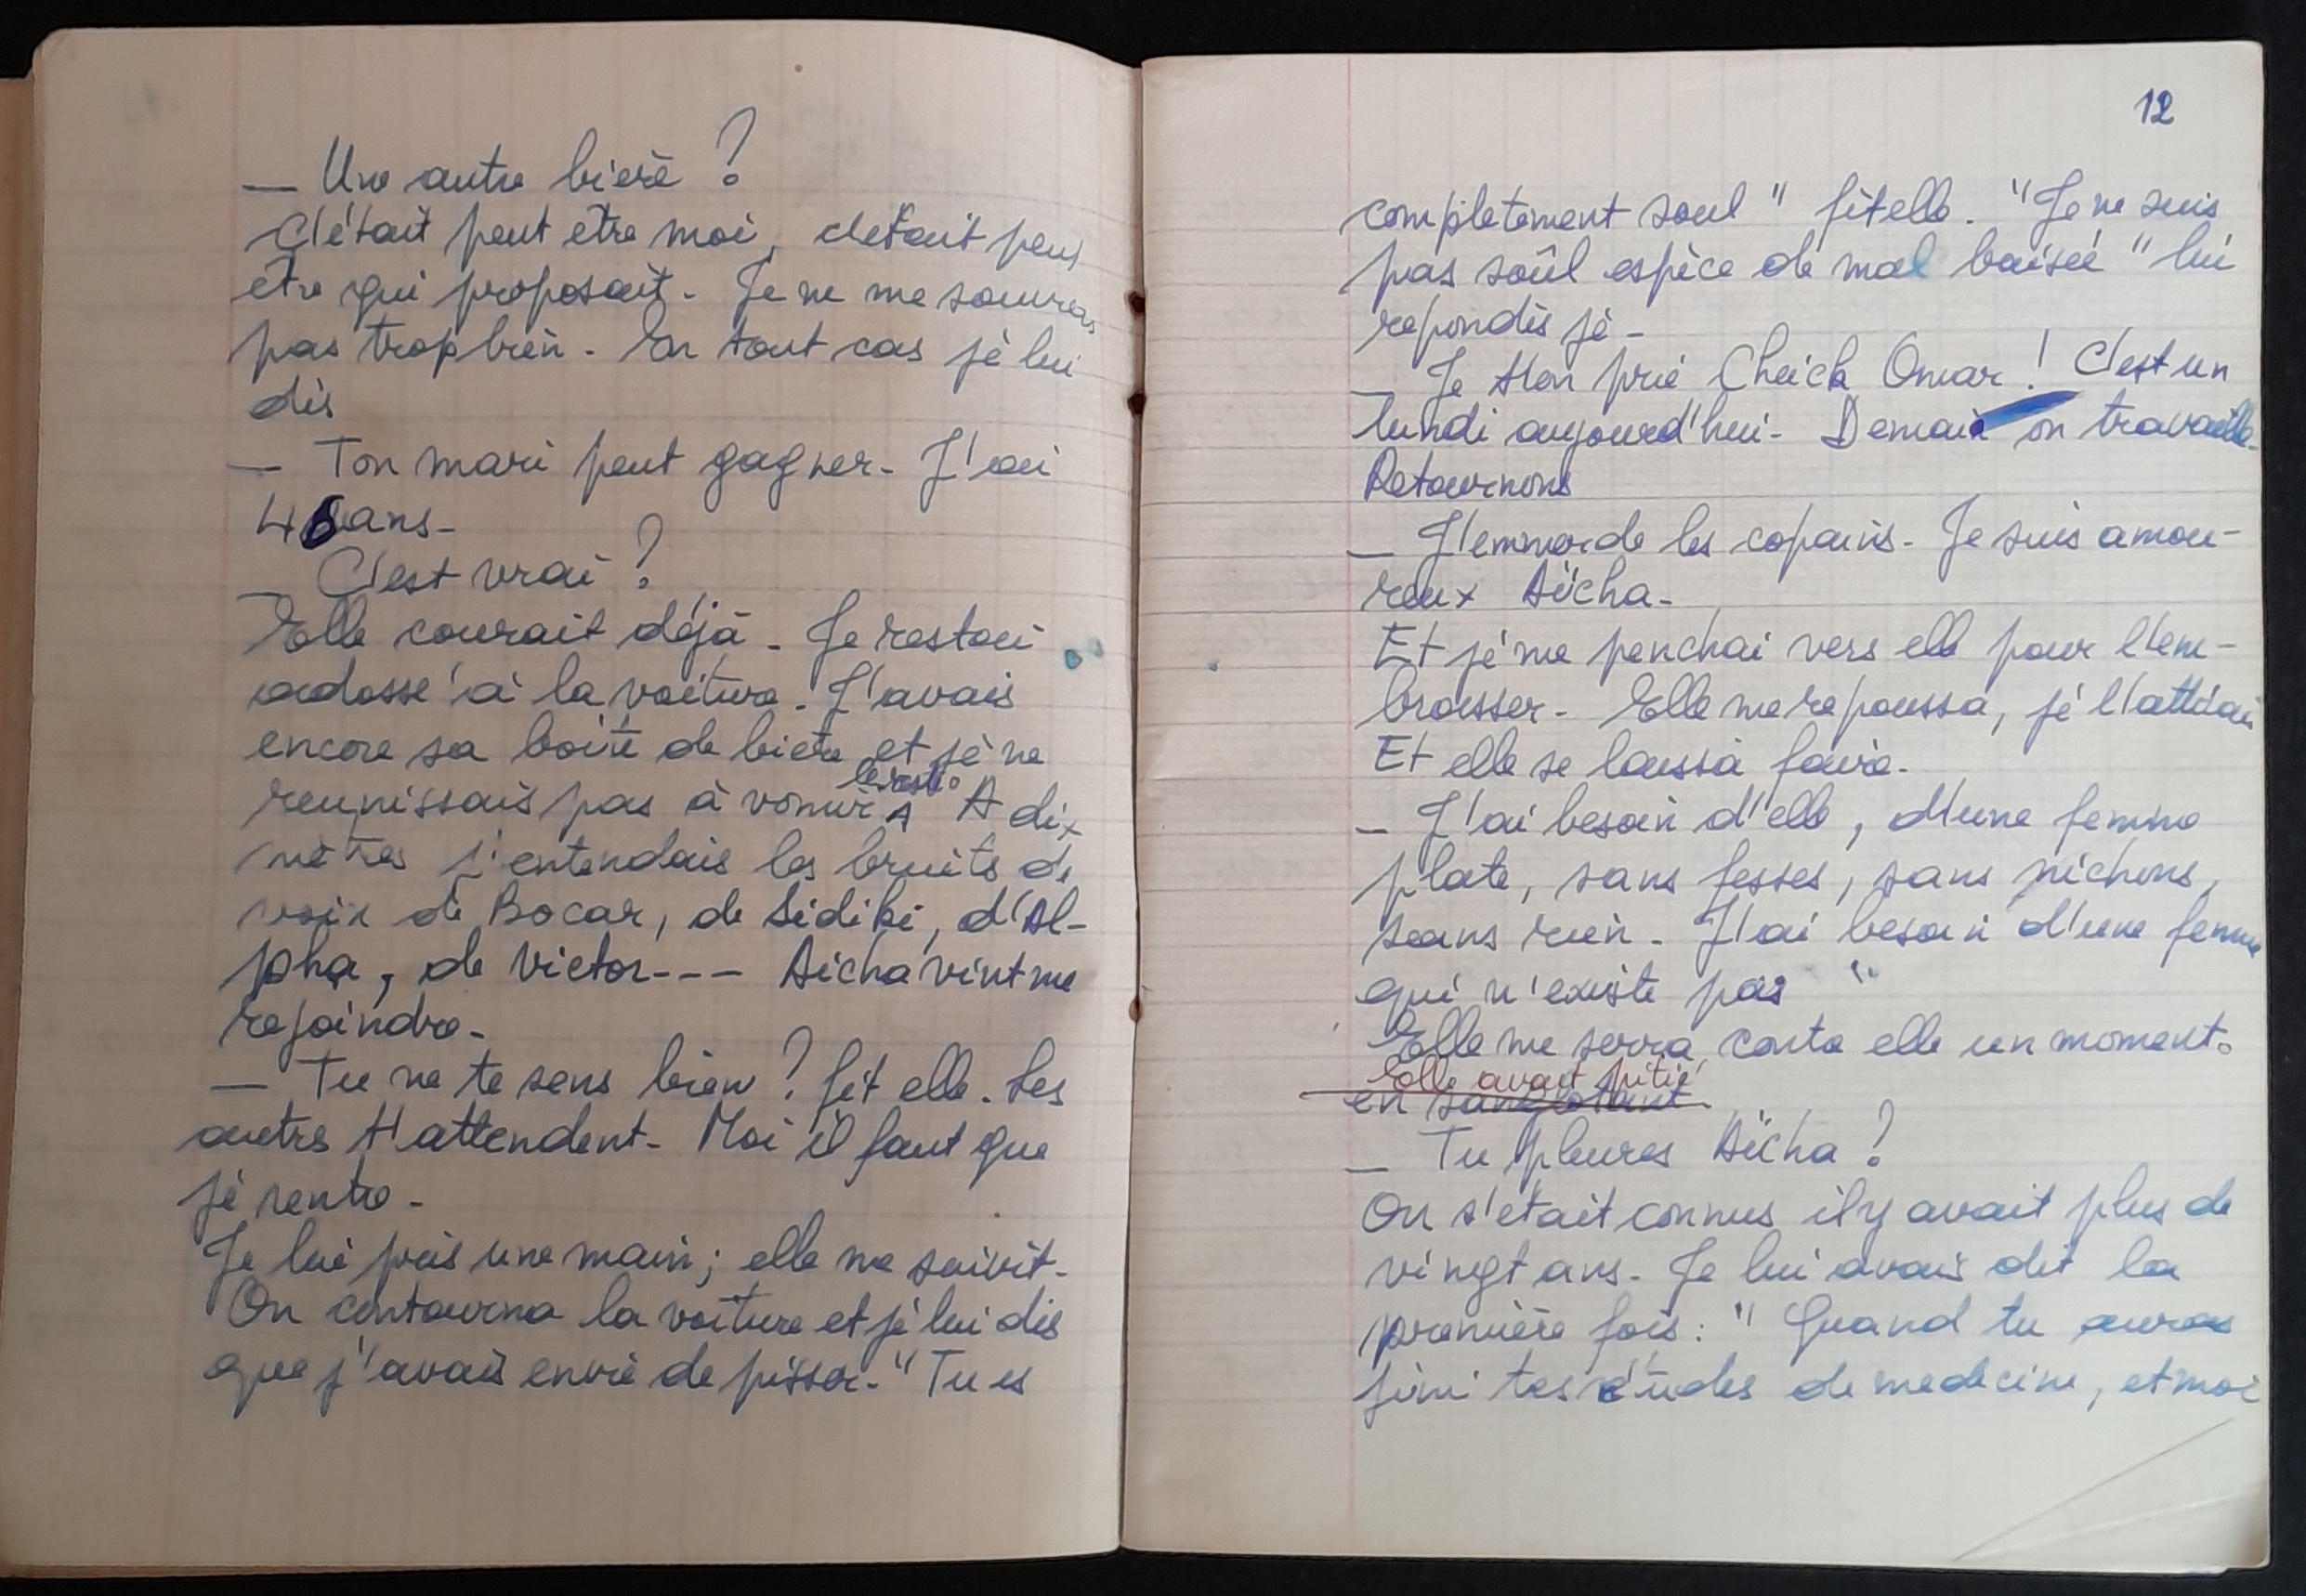 — Une autre bière ?
C'était peut etre moi, c'etait peut
etre qui proposait - Je ne me souviens
pas trop bien - En tout cas je lui
dis
— Ton mari peut gagner - J'ai
48 ans -
— C'est vrai ?
Elle courait déjà - Je restai
adossé à la voiture - J'avais
encore sa boite de biere et je ne
reunissais pas à vomir le reste. A dix
mètres j'entendais les bruits de
voix de Bocar, de Sidiki, d'Al-
pha, de Victor --- Aicha vint me
rejoindre -
— Tu ne te sens bien ? fit elle. Les
autres t'attendent - Moi il faut que
je rentre -
Je lui pris une main ; elle me suivit -
On contourna la voiture et je lui dis
que j'avais envie de pisser - " Tu es
12
completement soul " fit elle. " Je ne suis
pas soûl espèce de mal baisée " lui
repondis je -
— Je t'en prie Cheick Omar ! C'est un
lundi aujourd'hui - Demain on travaille -
Retournons
— J'emmerde les copains - Je suis amou-
reux Aïcha -
Et je me penchai vers elle pour l'em-
brasser - Elle me repoussa, je l'attirai
Et elle se laissa faire -
— J'ai besoin d'elle, d'une femme
plate, sans fesses, sans nichons,
sans rien - J'ai besoin d'une femme
qui n'existe pas "
Elle me serra contre elle un moment.
Elle avait pitié
en sanglotant
— Tu pleures Aïcha ?
On s'etait connus il y avait plus de
vingt ans - Je lui avais dit la
première fois : " Quand tu auras
fini tes études de medecine, et moi